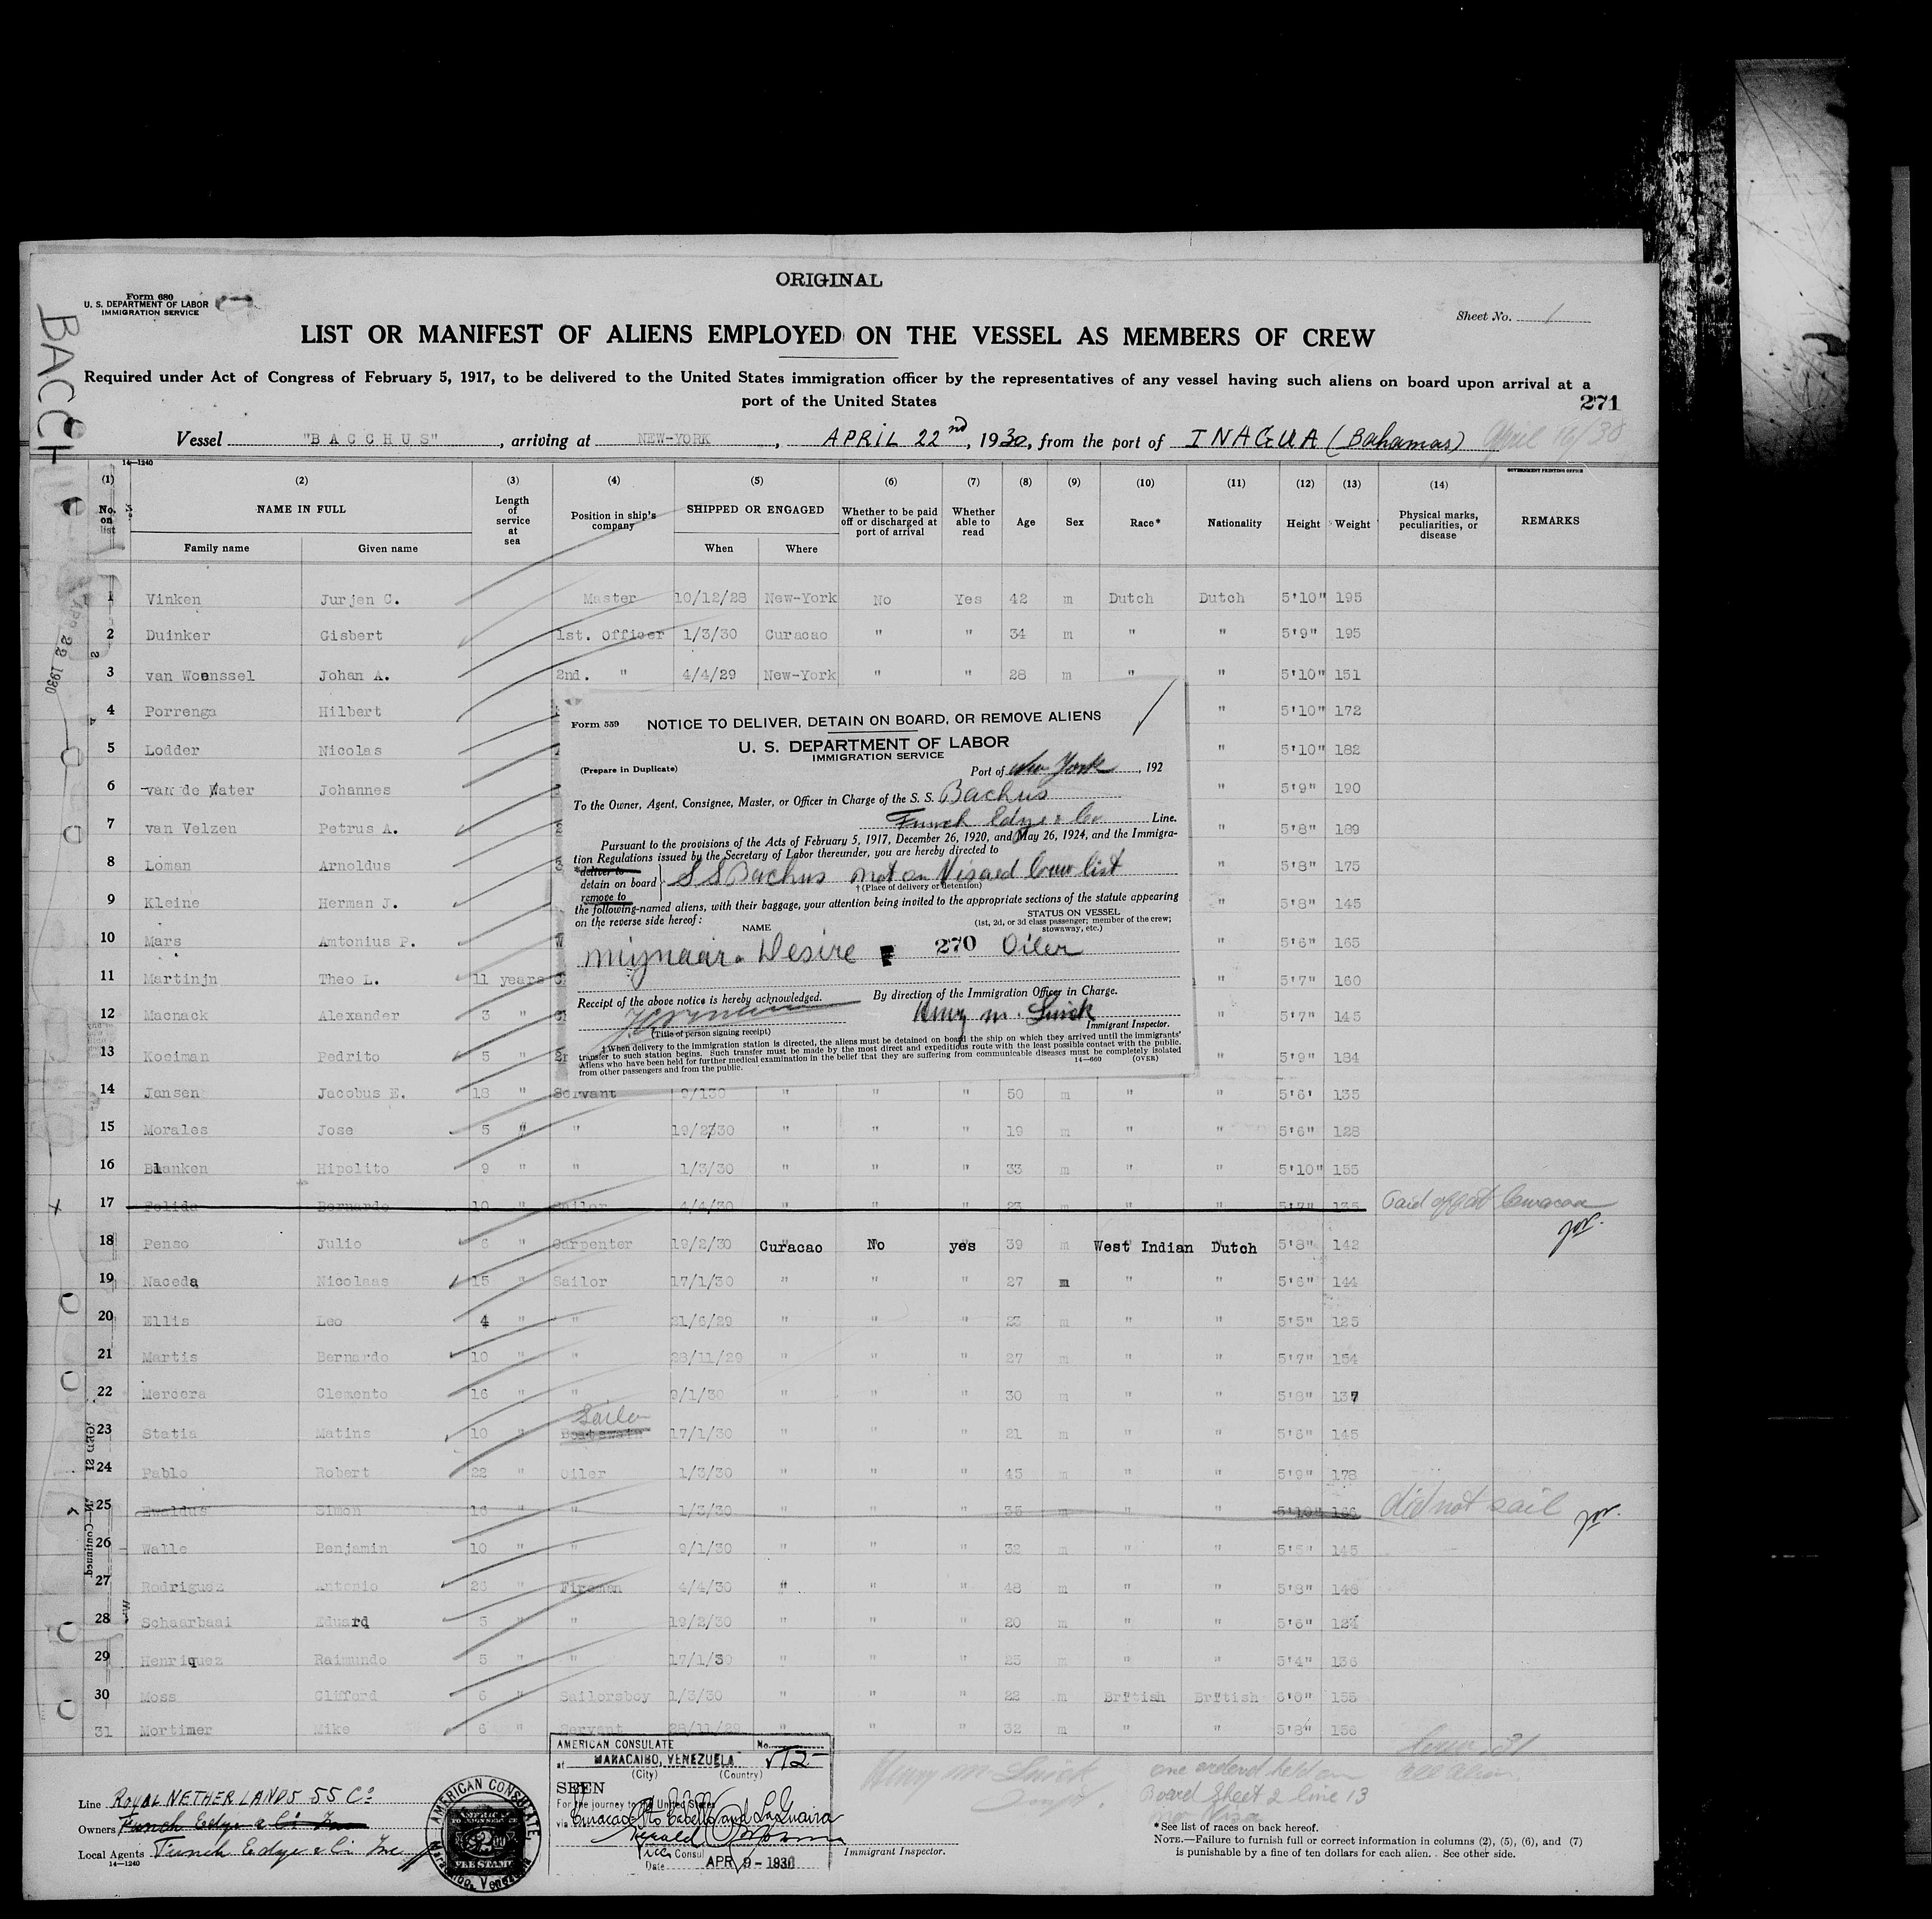 ORIGINAL
Form 680
U. S. DEPARTMENT OF LABOR
IMMIGRATION SERVICE
Sheet No. 1
LIST OR MANIFEST OF ALIENS EMPLOYED ON THE VESSEL AS MEMBERS OF CREW
Required under Act of Congress of February 5, 1917, to be delivered to the United States immigration officer by the representatives of any vessel having such aliens on board upon arrival at a
port of the United States
271
Vessel "BACCHUS", arriving at NEW-YORK, APRIL 22nd, 1930, from the port of INAGUA (Bahamas) April 16/30
14—1240
GOVERNMENT PRINTING OFFICE
(1) (2) (3) (4) (5) (6) (7) (8) (9) (10) (11) (12) (13) (14)
No. on list NAME IN FULL Length of service at sea Position in ship's company SHIPPED OR ENGAGED Whether to be paid off or discharged at port of arrival Whether able to read Age Sex Race* Nationality Height Weight Physical marks, peculiarities, or disease REMARKS
Family name Given name When Where
1 Vinken Jurjen C. Master 10/12/28 New-York No Yes 42 m Dutch Dutch 5'10" 195
2 Duinker Gisbert 1st. Officer 1/3/30 Curacao " " 34 m " " 5'9" 195
3 van Woenssel Johan A. 2nd. " 4/4/29 New-York " " 28 m " " 5'10" 151
4 Porrenga Hilbert " 5'10" 172
5 Lodder Nicolas " 5'10" 182
6 van de Water Johannes " 5'9" 190
7 van Velzen Petrus A. " 5'8" 189
8 Loman Arnoldus " 5'8" 175
9 Kleine Herman J. " 5'8" 145
10 Mars Amtonius P. " 5'6" 165
11 Martinjn Theo L. 11 years " 5'7" 160
12 Macnack Alexander 3 " " 5'7" 145
13 Koeiman Pedrito 5 " " 5'9" 184
14 Jansen Jacobus E. 18 " Servant 9/130 " " " 50 m " " 5'6' 135
15 Morales Jose 5 " " 19/2/30 " " " 19 m " " 5'6" 128
16 Blanken Hipolito 9 " " 1/3/30 " " " 33 m " " 5'10" 155
17 Felida Bernardo 10 " Sailor 4/4/30 " " " 23 m " " 5'7" 135 Paid off at Curacao
18 Penso Julio 6 " Carpenter 19/2/30 Curacao No yes 39 m West Indian Dutch 5'8" 142
19 Naceda Nicolaas 15 " Sailor 17/1/30 " " " 27 m " " 5'6" 144
20 Ellis Leo 4 " " 21/6/29 " " " 23 m " " 5'5" 125
21 Martis Bernardo 10 " " 28/11/29 " " " 27 m " " 5'7" 154
22 Mercera Clemento 16 " " 9/1/30 " " " 30 m " " 5'8" 137
Sailor
23 Statia Matins 10 " Boatswain 17/1/30 " " " 21 m " " 5'6" 145
24 Pablo Robert 22 " Oiler 1/3/30 " " " 45 m " " 5'9" 178
25 Ewaldus Simon 16 " " 1/3/30 " " " 35 m " " 5'10" 166 did not sail
26 Walle Benjamin 10 " " 9/1/30 " " " 32 m " " 5'5" 145
27 Rodriguez Antonio 26 " Fireman 4/4/30 " " " 48 m " " 5'8" 146
28 Schaarbaai Eduard 5 " " 19/2/30 " " " 20 m " " 5'6" 124
29 Henriquez Raimundo 5 " " 17/1/30 " " " 25 m " " 5'4" 136
30 Moss Clifford 6 " Sailorsboy 1/3/30 " " " 22 m British British 6'0" 155
31 Mortimer Mike 6 " Servant 28/11/29 " " " 32 m " " 5'8" 156
Form 559 NOTICE TO DELIVER, DETAIN ON BOARD, OR REMOVE ALIENS
U. S. DEPARTMENT OF LABOR
IMMIGRATION SERVICE
(Prepare in Duplicate)
Port of New York, 192
To the Owner, Agent, Consignee, Master, or Officer in Charge of the S. S. Bachus
Funch Edye & Co Line.
Pursuant to the provisions of the Acts of February 5, 1917, December 26, 1920, and May 26, 1924, and the Immigra-
tion Regulations issued by the Secretary of Labor thereunder, you are hereby directed to
*deliver to
detain on board S S Bachus not on Visaed Crew list
remove to
†(Place of delivery or detention)
the following-named aliens, with their baggage, your attention being invited to the appropriate sections of the statute appearing
on the reverse side hereof:
NAME
STATUS ON VESSEL
(1st, 2d, or 3d class passenger; member of the crew; stowaway, etc.)
Mijnaar Desire 270 Oiler
Receipt of the above notice is hereby acknowledged. By direction of the Immigration Officer in Charge.
Henry M. Luick
(Title of person signing receipt) Immigrant Inspector.
‡When delivery to the immigration station is directed, the aliens must be detained on board the ship on which they arrived until the immigrants'
transfer to such station begins. Such transfer must be made by the most direct and expeditious route with the least possible contact with the public.
Aliens who have been held for further medical examination in the belief that they are suffering from communicable diseases must be completely isolated
from other passengers and from the public.
14—660 (OVER)
BACCH
APR 22 1930
Line ROYAL NETHERLANDS SS Co
Owners Funch Edye & Co Inc
Local Agents Funch Edye & Co Inc
14—1240
AMERICAN CONSULATE,
Maracaibo, Venezuela
FEE STAMP
AMERICAN CONSULATE No.
at MARACAIBO, VENEZUELA
(City) (Country)
SEEN
For the journey to the United States
via Curacao Pto Cabello and La Guaira
Vice Consul
Date APR 9 - 1930
Henry M. Luick
Immigrant Inspector.
one ordered held on
Board Sheet 2 line 13
no Visa
Crew 31
all alien.
*See list of races on back hereof.
NOTE.—Failure to furnish full or correct information in columns (2), (5), (6), and (7)
is punishable by a fine of ten dollars for each alien. See other side.